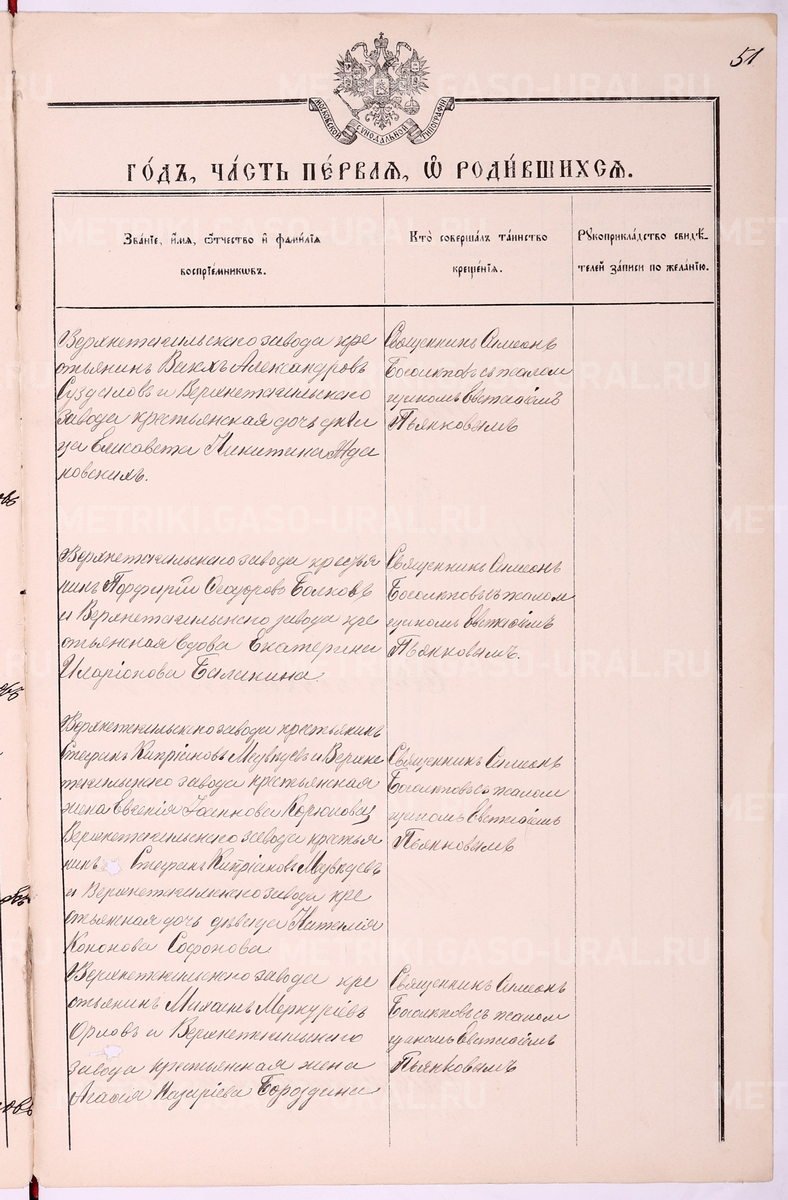 51
МОСКОВСКОЙ СѴНОДАЛЬНОЙ ТИПОГРАФІИ
ГО́ДЪ, ЧА́СТЬ ПЕ́РВАЯ, Ѡ҆ РОДИ́ВШИХСЯ.
Зва́ніе, и҆́мя, ѻ҆́тчество и҆ фами́лія
воспріе́мникѡвъ.
Кто̀ соверша́лъ та́инство
креще́нія.
Рꙋкоприкла́дство свидѣ́-
телей за́писи по жела́нію.
Верхнетагильскаго завода кре
стьянинъ Вакхъ Александровъ
Суздаловъ и Верхнетагильскаго
завода крестьянская дочь дѣви
ца Елисавета Никитина Жда
новскихъ.
Священникъ Симеонъ
Боголюбовъ съ псалом
щикомъ Евѳиміемъ
Пьянковымъ
Верхнетагильскаго завода крестья
нинъ Порфирій Ѳеодоровъ Балковъ
и Верхнетагильскаго завода кре
стьянская вдова Екатерина
Иларіонова Баланина.
Священникъ Симеонъ
Боголюбовъ съ псалом
щикомъ Евѳиміемъ
Пьянковымъ.
Верхнетагильскаго завода крестьянинъ
Стефанъ Кипріановъ и Верхне
тагильскаго завода крестьянская
жена Евгенія Іоаннова
Верхнетагильскаго завода крестья
нинъ Стефанъ Кипріановъ
и Верхнетагильскаго завода кре
стьянская дочь дѣвица Наталія
Кононова Сафонова
Священникъ Симеонъ
Боголюбовъ съ псалом
щикомъ Евѳиміемъ
Пьянковымъ
Верхнетагильскаго завода кре
стьянинъ Михаилъ Меркуріевъ
Орловъ и Верхнетагильскаго
завода крестьянская жена
Агафія Назаріева Бороздина
Священникъ Симеонъ
Боголюбовъ съ псалом
щикомъ Евѳиміемъ
Пьянковымъ
METRIKI.GASO-URAL.RU